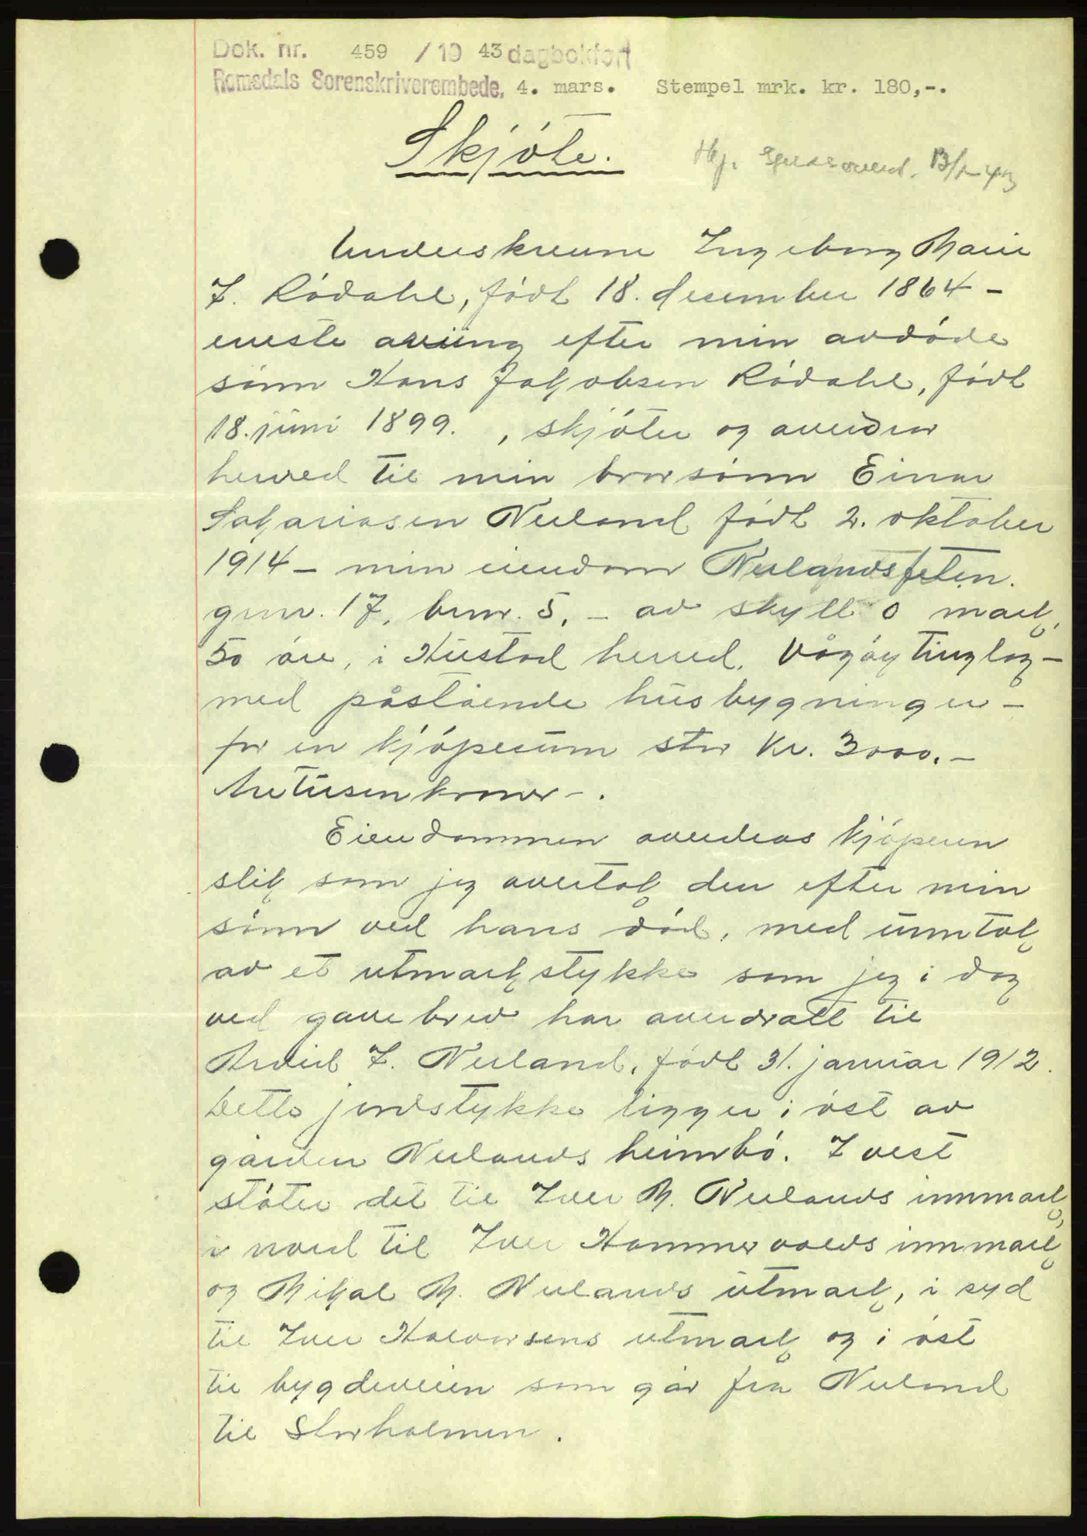 Dok. nr. 459 / 19 43 dagbokført
Romsdals Sorenskriverembede, 4. mars. Stempel mrk. kr. 180,-.
Skjøte.
13/1-43
Underskrevne Ingeborg Marie
J. Rødahl, født 18. desember 1864 -
eneste arving efter min avdøde
sønn Hans Jakobsen Rødahl, født
18. juni 1899. , skjøter og averdrar
herved til min brorsønn Einar
Sakariasen Nerland født 2. oktober
1914 - min eiendom Nerlandsfeten.
gnr. 17, bnr. 5, - av skyll 0 mark,
50 øre, i Hustad herred, Vågøy tinglag -
med påstående husbygninger -
for en kjøpesum stor kr. 3000.-
tretusenkroner -.
Eiendommen averdras kjøperen
slik som jeg avertok den efter min
sønn ved hans død, med unntak
av et utmarkstykke som jeg i dag
ved gavebrev har averdratt til
Arvid J. Nerland, født 31. januar 1912.
Dette jordstykke ligger i øst av
gården Nerlands heimbø. I vest
støter det til Iver M. Nerlands innmark,
i nord til Iver Hammervolds innmark
og Mikal M. Nerlands utmark, i syd
til Iver Halvorsens utmark og i øst
til bygdeveien som går fra Nerland
til Storholmen.